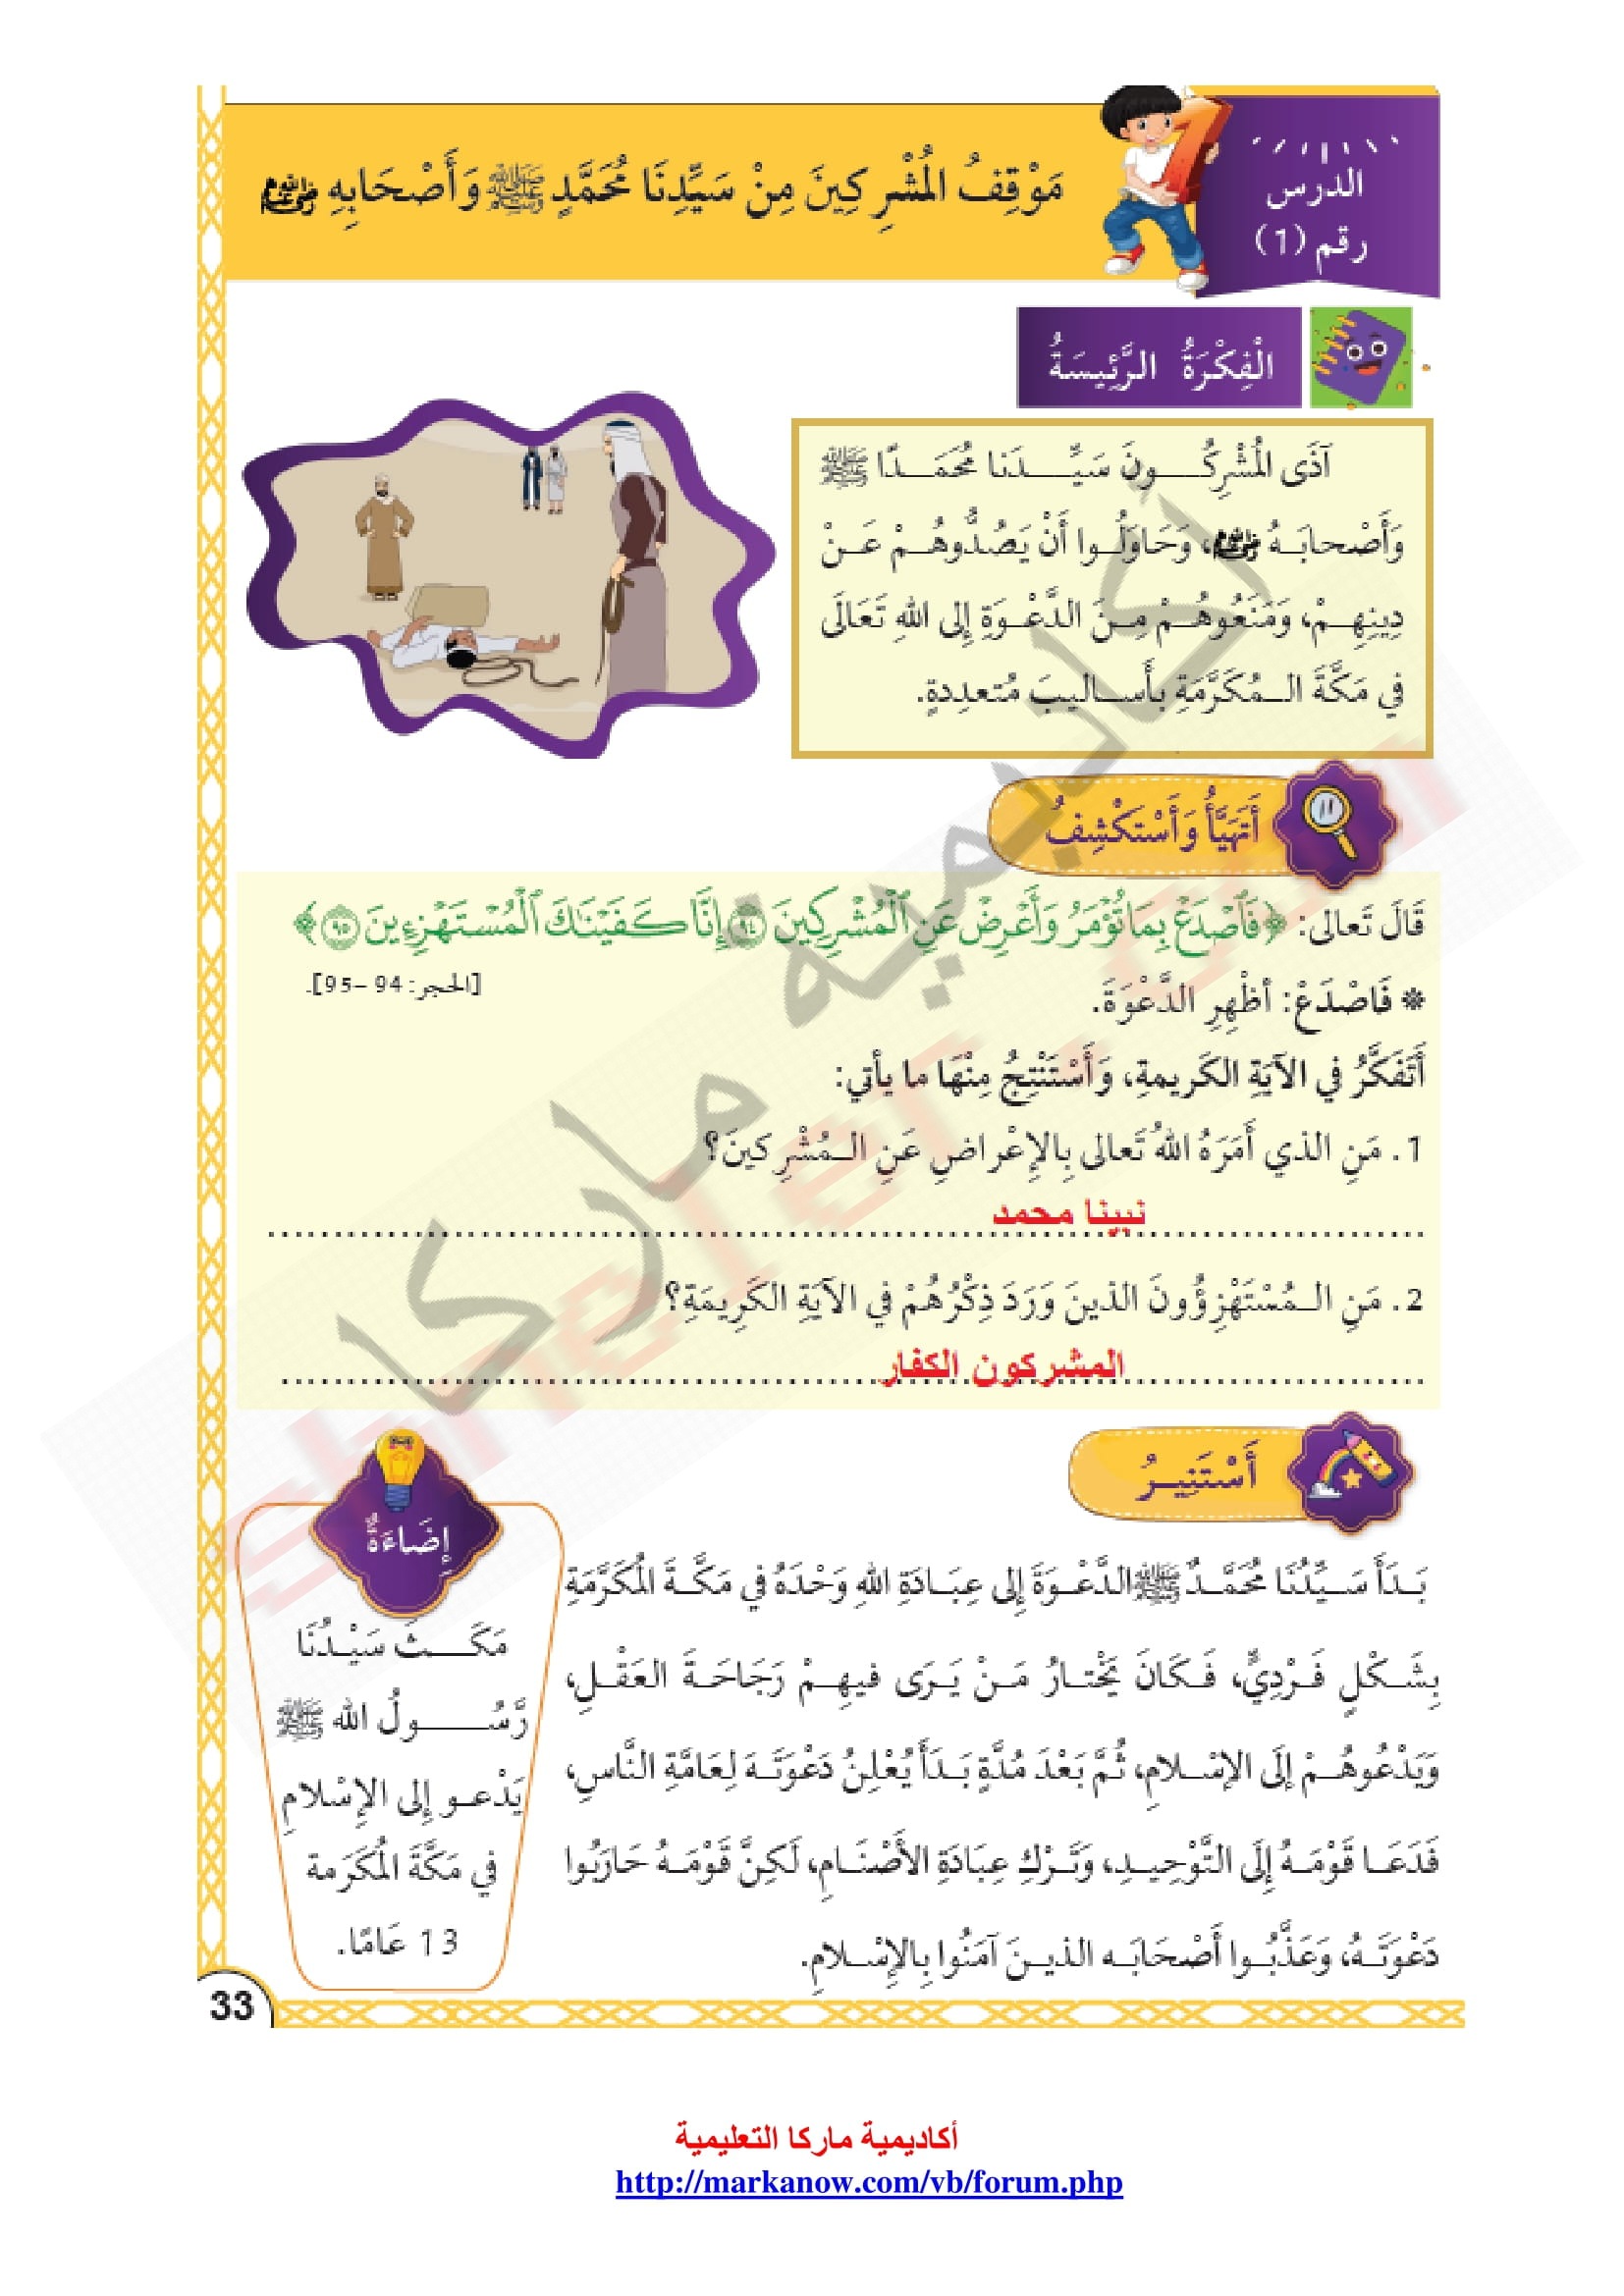 الدرس
رقم (1)
مَوْقِفُ الْمُشْرِكِينَ مِنْ سَيِّدِنَا مُحَمَّدٍ ﷺ وَأَصْحَابِهِ رضي الله عنهم
الْفِكْرَةُ الرَّئِيسَةُ
آذَى الْمُشْرِكُونَ سَيِّدَنا مُحَمَدًا ﷺ
وَأَصْحابَهُ رضي الله عنهم، وَحَاوَلُوا أَنْ يَصُدُّوهُمْ عَنْ
دِينِهِمْ، وَمَنَعُوهُمْ مِنَ الدَّعْوَةِ إِلى اللهِ تَعَالَى
في مَكَّةَ الـمُكَرَّمَةِ بأَساليبَ مُتعدِدةٍ.
أَتَهَيَّأُ وَأَسْتَكْشِفُ
قَالَ تَعالى: ﴿فَٱصْدَعْ بِمَا تُؤْمَرُ وَأَعْرِضْ عَنِ ٱلْمُشْرِكِينَ ٩٤ إِنَّا كَفَيْنَٰكَ ٱلْمُسْتَهْزِءِينَ ٩٥﴾
[الحجر: 94 -95].
* فَاصْدَعْ: أظْهِرِ الدَّعْوَةَ.
أَتَفَكَّرُ في الآيَةِ الكَريمةِ، وَأَسْتَنْتِجُ مِنْهَا ما يأتي:
1. مَنِ الذي أَمَرَهُ اللهُ تَعالى بِالإِعْراضِ عَنِ الـمُشْرِكينَ؟
نبينا محمد
2. مَنِ الـمُسْتَهْزِؤُونَ الذينَ وَرَدَ ذِكْرُهُمْ في الآيَةِ الكَرِيمَةِ؟
المشركون الكفار
أَسْتَنِيرُ
بَدَأَ سَيِّدُنَا مُحَمَّدٌ ﷺ الدَّعْوَةَ إِلى عِبَادَةِ اللهِ وَحْدَهُ في مَكَّةَ الْمُكَرَّمَةِ
بِشَكْلٍ فَرْدِيٍّ، فَكَانَ يَخْتارُ مَنْ يَرَى فيهِمْ رَجَاحَةَ العَقْلِ،
وَيَدْعُوهُمْ إِلَى الإِسْلامِ، ثُمَّ بَعْدَ مُدَّةٍ بَدَأَ يُعْلِنُ دَعْوَتَهَ لِعَامَّةِ النَّاسِ،
فَدَعَا قَوْمَهُ إِلَى التَّوْحِيدِ، وَتَرْكِ عِبَادَةِ الأَصْنَامِ، لَكِنَّ قَوْمَهُ حَارَبُوا
دَعْوَتَهُ، وَعَذَّبُوا أَصْحَابَه الذينَ آمَنُوا بِالإِسْلامِ.
إِضَاءَةٌ
مَكَثَ سَيْدُنَا
رَّسُولُ الله ﷺ
يَدْعو إِلى الإِسْلامِ
في مَكَّةَ الْمُكَرَمة
13 عَامًا.
33
أكاديمية ماركا
أكاديمية ماركا التعليمية
http://markanow.com/vb/forum.php